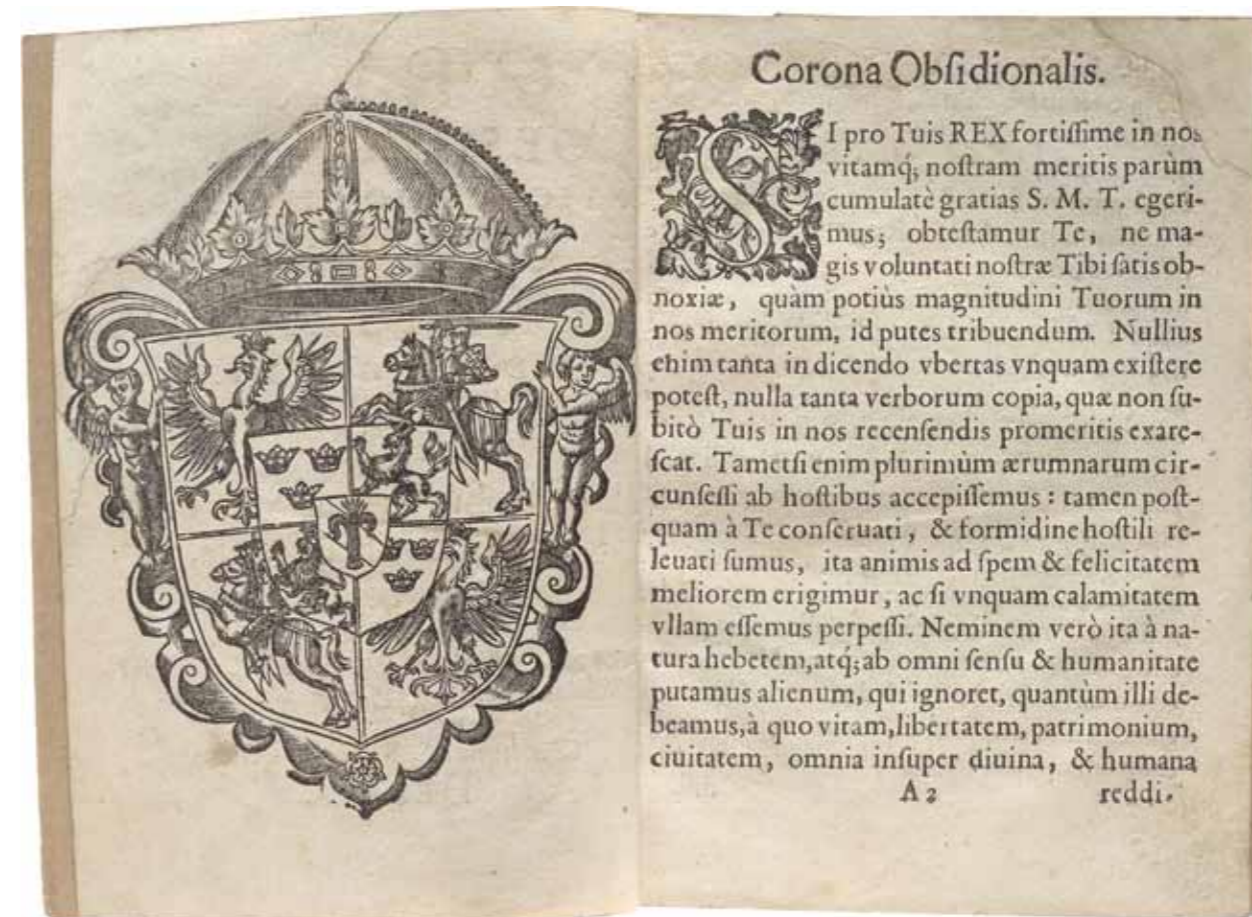 Corona Obſidionalis.
SI pro Tuis REX fortiſſime in nos
vitamq́; noſtram meritis parùm
cumulatè gratias S. M. T. egeri-
mus; obteſtamur Te, ne ma-
gis voluntati noſtræ Tibi ſatis ob-
noxiæ, quàm potiùs magnitudini Tuorum in
nos meritorum, id putes tribuendum. Nullius
enim tanta in dicendo vbertas vnquam exiſtere
poteſt, nulla tanta verborum copia, quæ non ſu-
bitò Tuis in nos recenſendis promeritis exare-
ſcat. Tametſi enim plurimùm ærumnarum cir-
cunſeſſi ab hoſtibus accepiſſemus : tamen poſt-
quam à Te conſeruati, & formidine hoſtili re-
leuati ſumus, ita animis ad ſpem & felicitatem
meliorem erigimur, ac ſi vnquam calamitatem
vllam eſſemus perpeſſi. Neminem verò ita à na-
tura hebetem, atq́; ab omni ſenſu & humanitate
putamus alienum, qui ignoret, quantùm illi de-
beamus, à quo vitam, libertatem, patrimonium,
ciuitatem, omnia inſuper diuina, & humana
A 2 reddi-